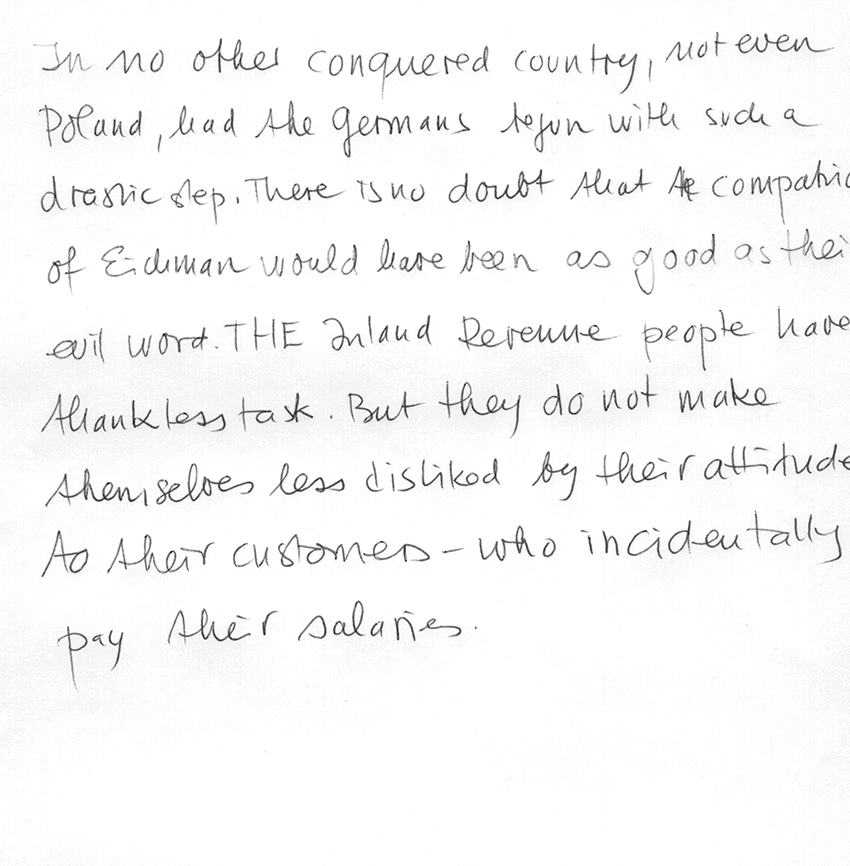 In no other conquered country, not even
Poland, had the Germans begun with such a
drastic step. There is no doubt that the
of Eichman would have been as good as
evil word. THE Inland Revenue people have
thankless task. But they do not make
themselves less disliked by their attitude
to their customers - who incidentally
pay their salaries.